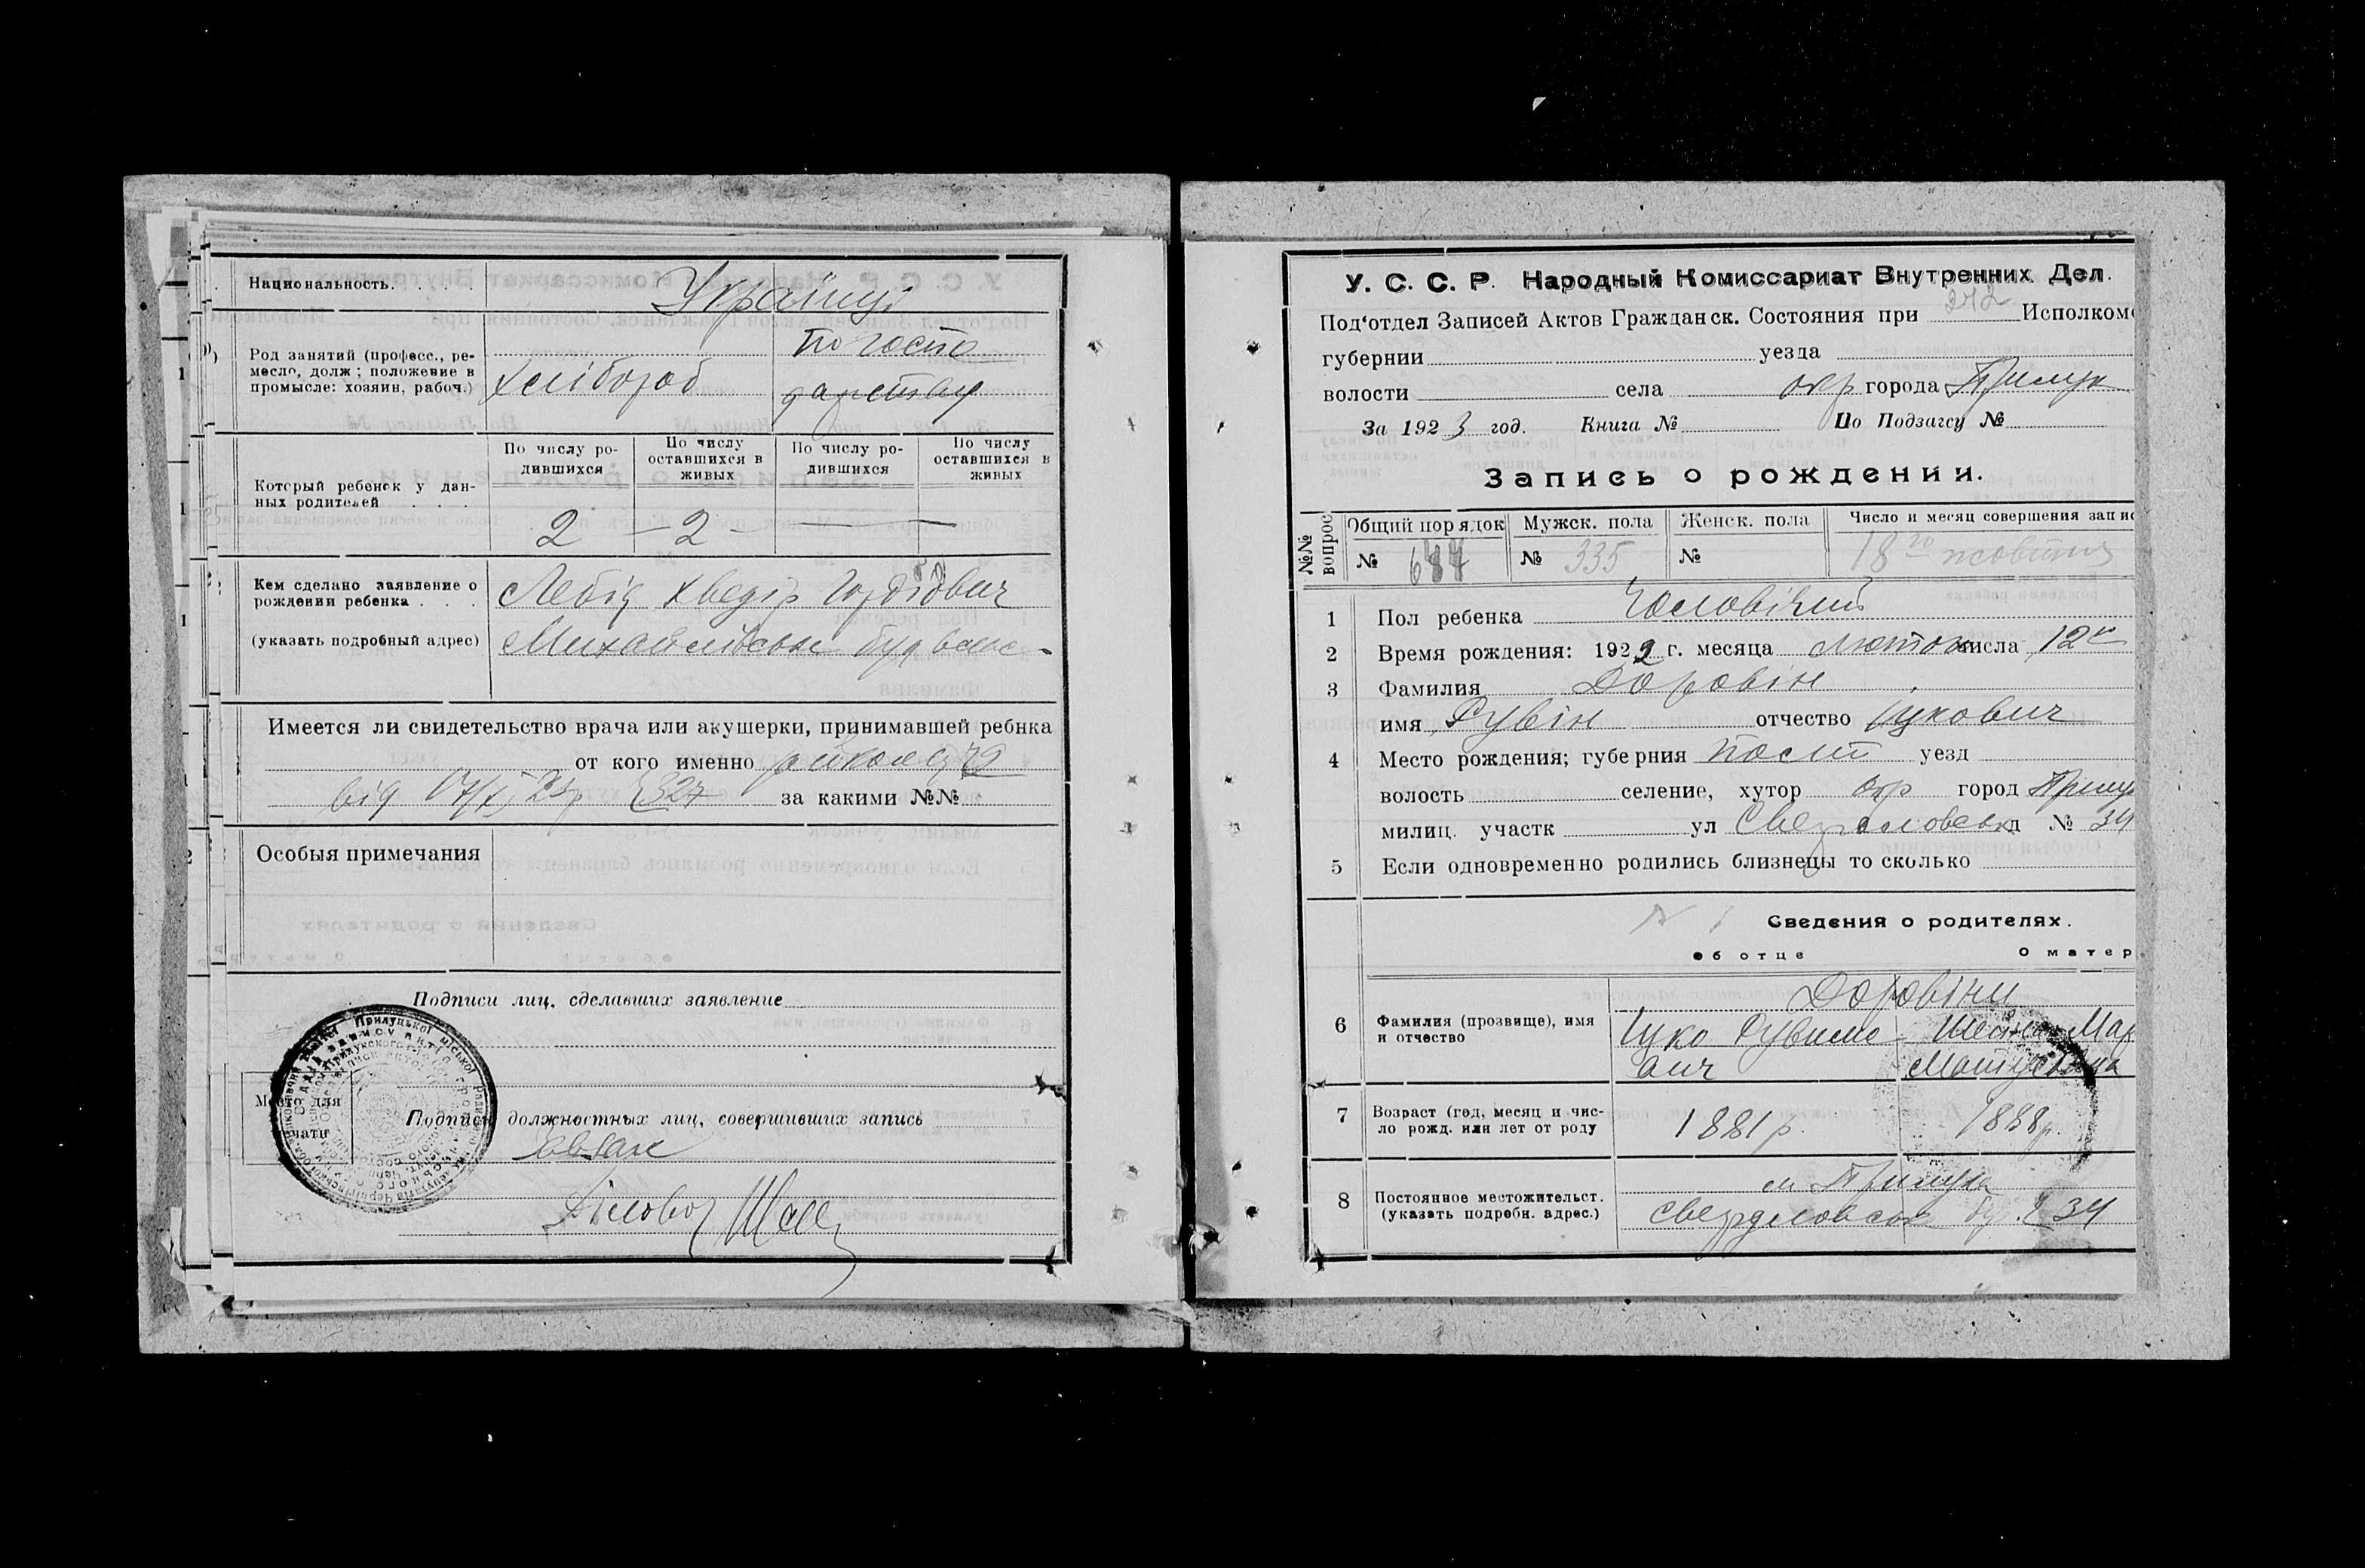 Национальность.
Українці
Род занятий (професс., ре-
месло, долж; положение в
промысле: хозяин, рабоч.)
хлібороб
по госпо
дарству
Который ребенок у дан-
ных родителей
По числу ро-
дившихся
По числу
оставшихся в
живых
По числу ро-
дившихся
По числу
оставшихся в
живых
2 - 2 - — —
Кем сделано заявление о
рождении ребенка . . .
(указать подробный адрес)
Лебідь Хведір Гордійович
Михайлівськ буд власн-
Имеется ли свидетельство врача или акушерки, принимавшей ребнка
от кого именно
від 327 за какими №№
Особыя примечания
Подписи лиц, сделавших заявление
Место для
печати
Подписи должностных лиц, совершивших запись
Завзаг
Діловод
У. С. С. Р. Народный Комиссариат Внутренних Дел.
Под'отдел Записей Актов Гражданск. Состояния при 242 Исполком
губернии уезда
волости села окр города Прилук
За 1923 год. Книга № По Подзагсу №
Запись о рождении.
№№ вопрос
Общий порядок Мужск. пола Женск. пола Число и месяц совершения запис
№ 687 № 335 № 18го жовтня
1 Пол ребенка Чоловічий
2 Время рождения: 1922 г. месяца лютого числа 12
3 Фамилия Доровін
имя Рувін отчество Іцкович
4 Место рождения; губерния Полт уезд
волость селение, хутор окр город Прилук
милиц. участк ул Свердловськ д № 34
5 Если одновременно родились близнецы то сколько
№ 1 Сведения о родителях.
об отце О матер
6 Фамилия (прозвище), имя
и отчество
Доровіни
Іцко Рувимо
вич
Шейна Мар
Матусовна
7 Возраст (год, месяц и чис-
ло рожд. или лет от роду
1881 р. 1888 р.
8 Постоянное местожительст.
(указать подробн. адрес.)
м Прилука
Свердловськ буд № 34